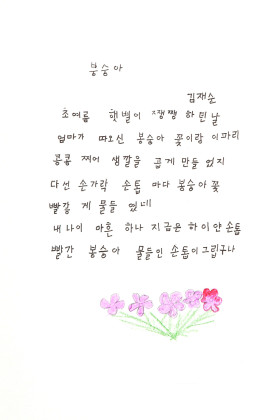 봉숭아
김재순
초여름 햇볕이 쨍쨍 하던날
엄마가 따오신 봉숭아 꽃이랑 이파리
콩콩 찌어 색깔을 곱게 만들었지
다섯 손가락 손톱 마다 봉숭아꽃
빨갛 게 물들 였네
내 나이 아흔 하나 지금은 하이얀 손톱
빨간 봉숭아 물들인 손톱이 그립구나